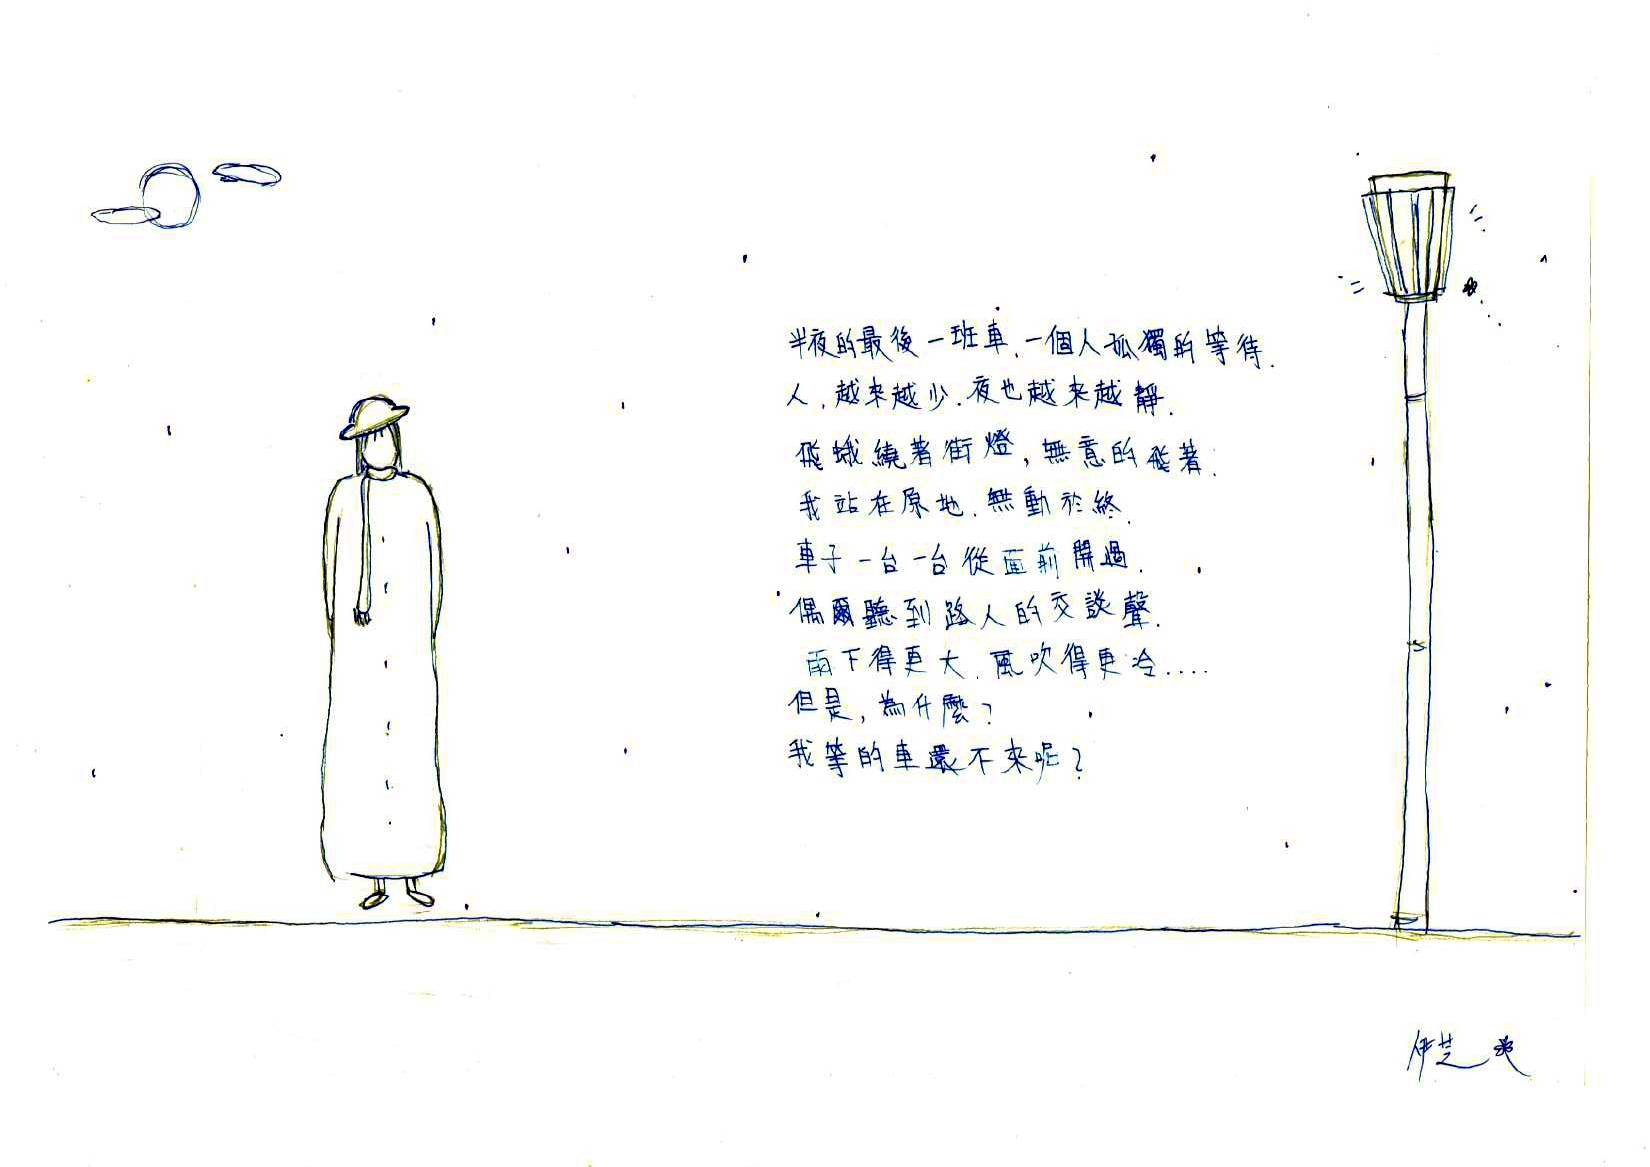 半夜的最後一班車.一個人孤獨的等待.
人.越來越少.夜也越來越靜.
飛蛾繞著街燈,無意的飛著.
我站在原地.無動於終.
車子一台一台從面前開過.
偶爾聽到路人的交談聲.
雨下得更大.風吹得更冷....
但是,為什麼?
我等的車還不來呢?
伊芝